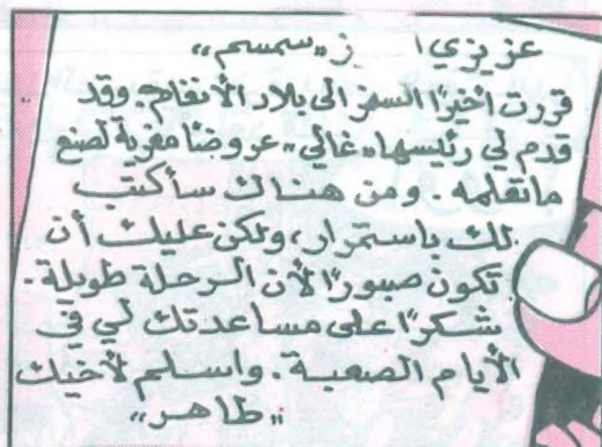 عزيزي ز «سمسم»
قررت اخيرًا السفر الى بلاد الأنغام. وقد
قدم لي رئيسها «غالي» عروضًا مغرية لصنع
ماتعلمه. ومن هناك سأكتب
لك باستمرار، ولكن عليك أن
تكون صبورًا لأن الرحلة طويلة.
شكرًا على مساعدتك لي في
الأيام الصعبة. واسلم لأخيك
«طاهر»